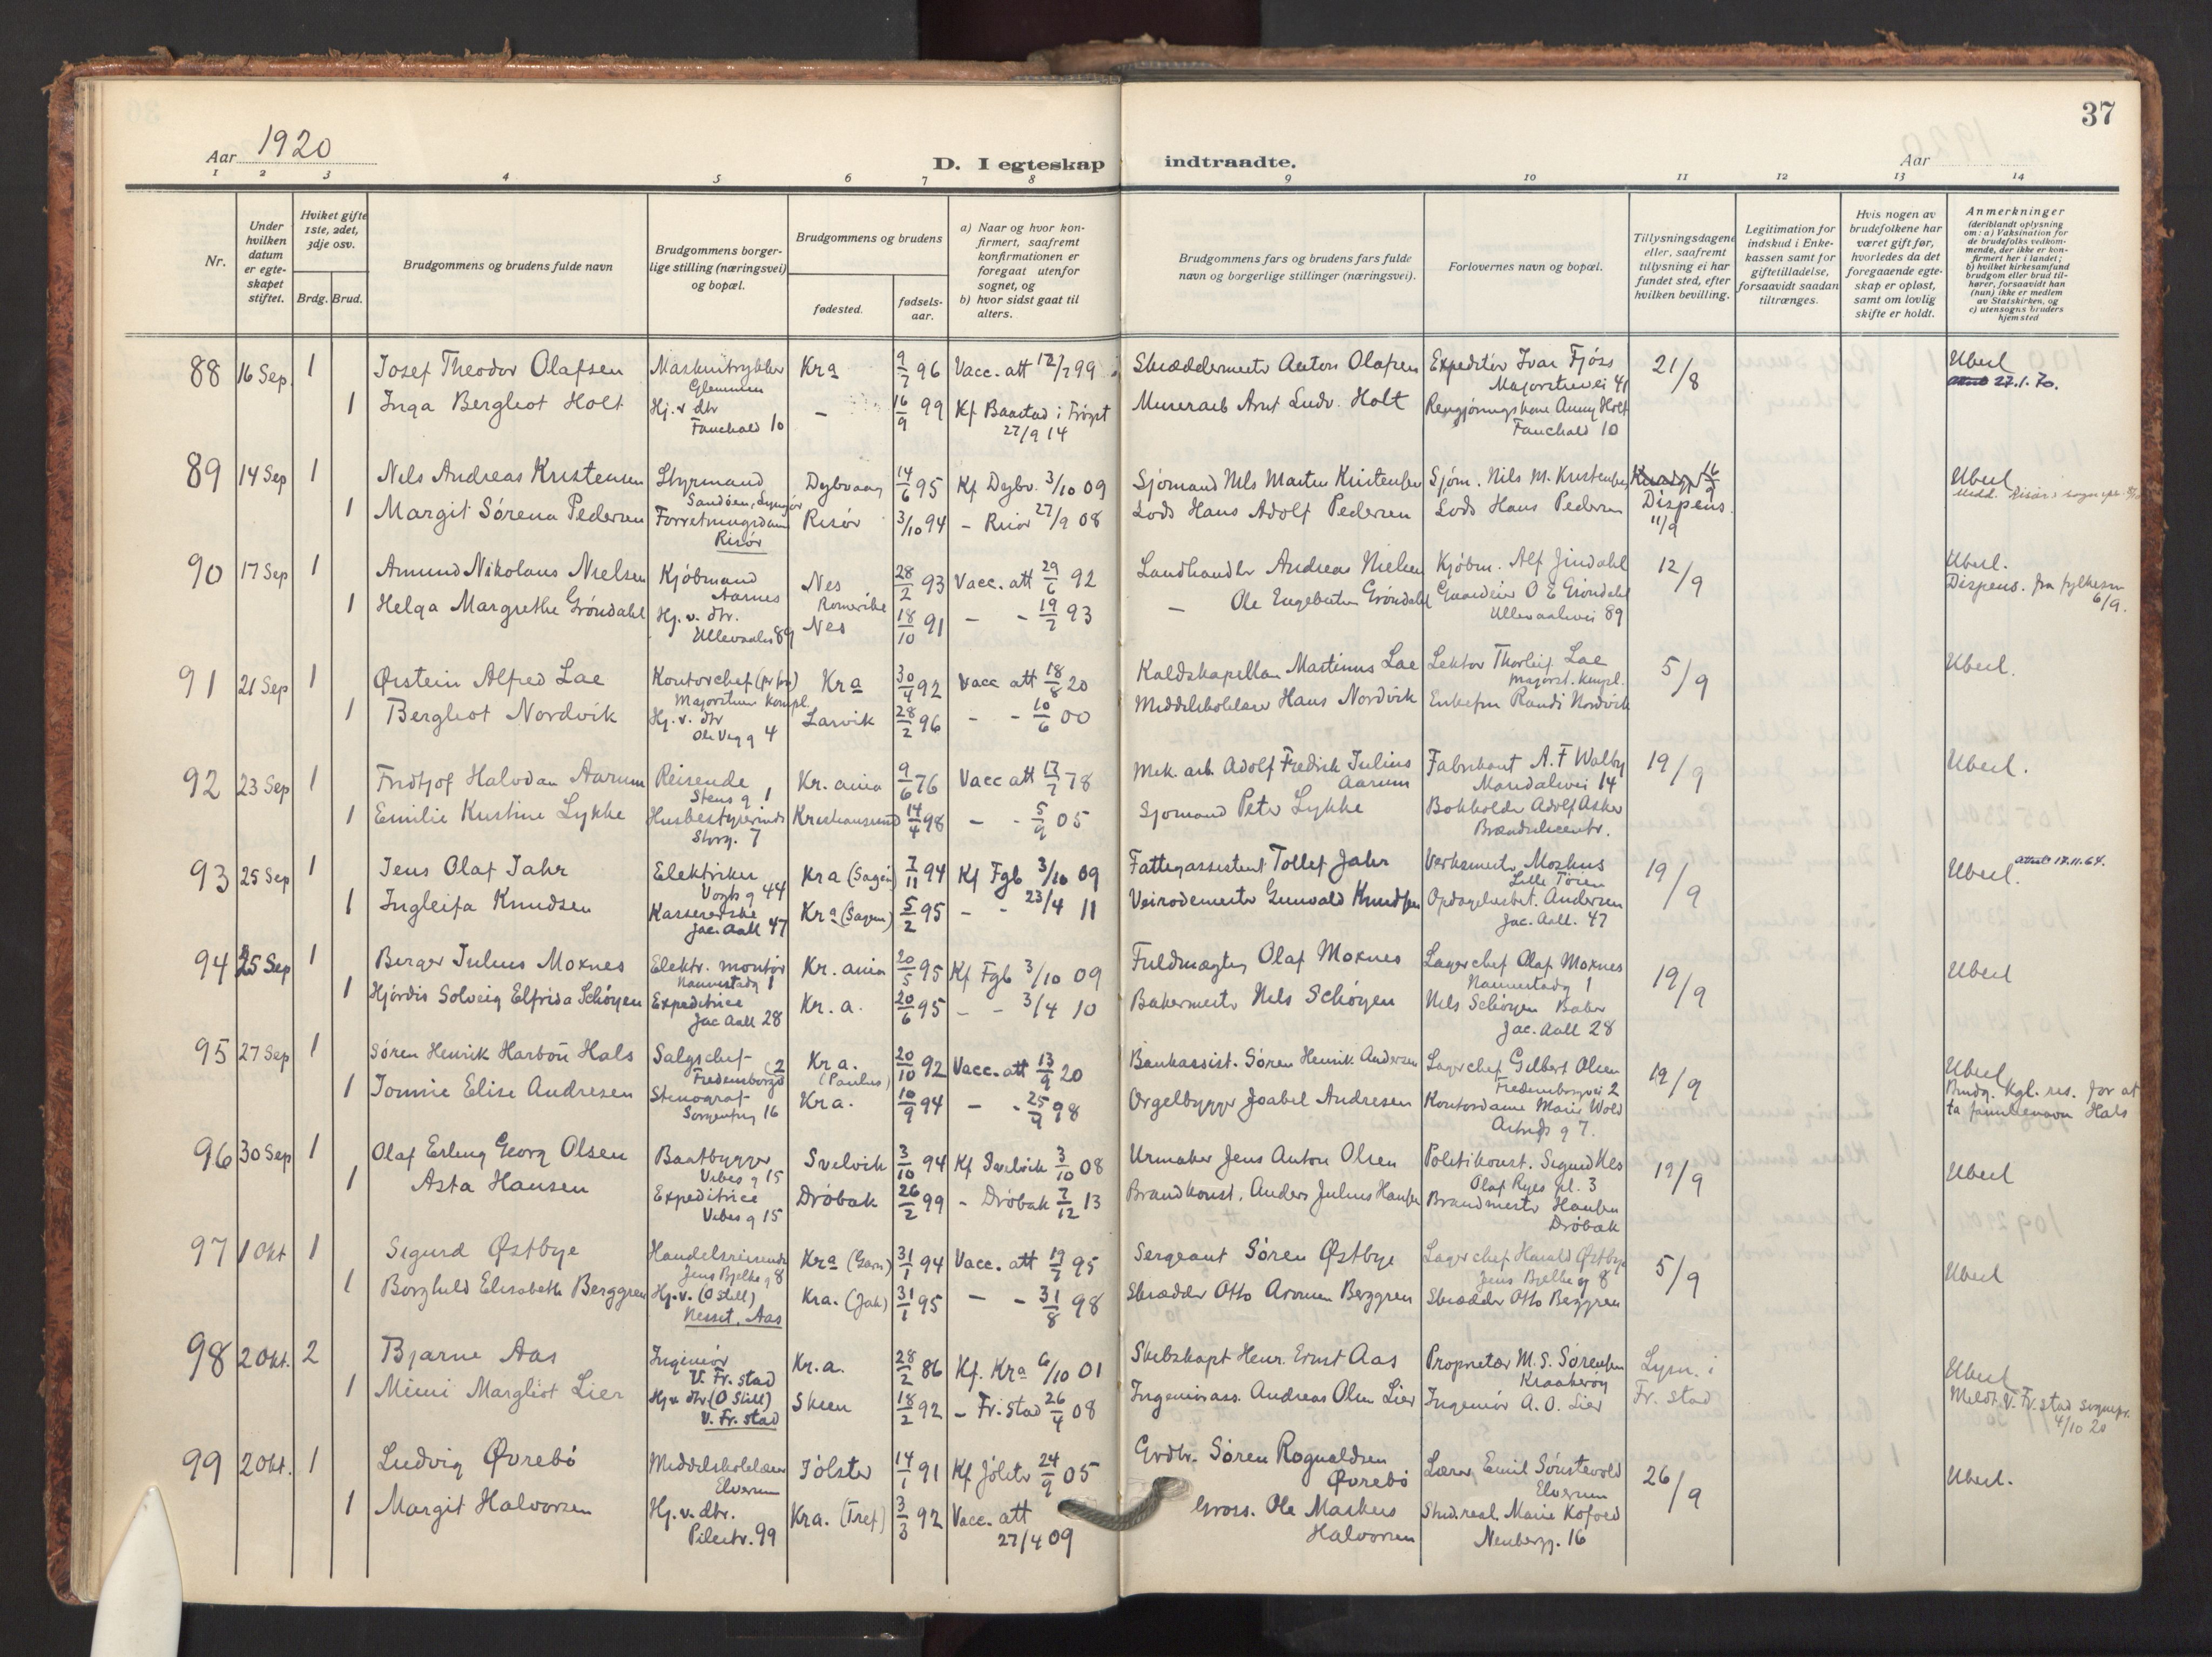 37
Aar 1920
D. I egteskap indtraadte.
Aar
1 2 3 4 5 6 7 8 9 10 11 12 13 14
Nr.
Under hvilken datum er egteskapet stiftet.
Hviket gifte 1ste, 2det, 3dje osv.
Brdg. Brud.
Brudgommens og brudens fulde navn
Brudgommens borgerlige stilling (næringsvei) og bopæl.
Brudgommens og brudens
fødested.
fødselsaar.
a) Naar og hvor konfirmert, saafremt konfirmationen er foregaat utenfor sognet, og
b) hvor sidst gaat til alters.
Brudgommens fars og brudens fars fulde navn og borgerlige stillinger (næringsvei).
Forlovernes navn og bopæl.
Tillysningsdagene eller, saafremt tillysning ei har fundet sted, efter hvilken bevilling.
Legitimation for indskud i Enkekassen samt for giftetilladelse, forsaavidt saadan tiltrænges.
Hvis nogen av brudefolkene har været gift før, hvorledes da det foregaaende egteskap er opløst, samt om lovlig skifte er holdt.
Anmerkninger
(deriblandt oplysning om: a) Vaksination for de brudefolks vedkommende, der ikke er konfirmert her i landet; b) hvilket kirkesamfund brudgom eller brud tilhører, forsaavidt han (hun) ikke er medlem av Statskirken, og c) utensogns bruders hjemsted
88 16 Sep. 1 Josef Theodor Olafsen Maskintrykker Glemmen Kra 9/7 96 Vacc. att 12/7 99 Skræddermester Anton Olafsen Expeditør Ivar Fjøss Majorstuvei 41 21/8 Ubesl 27.1.70.
1 Inga Bergliot Holt Hj. v dtr Fauchald 10 - 16/9 99 Kf Baastad i Trøgst 27/9 14 Murerarb Arnt Ludv. Holt Rengjøringskone Anny Holt Fauchald 10
89 14 Sep 1 Nils Andreas Kristensen Styrmand Sandøen, Lyngør Dybvaag 14/6 95 Kf Dybv. 3/10 09 Sjømand Nils Martin Kristensen Sjøm. Nils M. Kristensen Dispens. 11/9 Ubesl
1 Margit Sørena Pedersen Forretningsdame Risør Risør 3/10 94 - Risør 27/9 08 Lods Hans Adolf Pedersen Lods Hans Pedersen
90 17 Sep 1 Amund Nikolaus Nielsen Kjøbmand Aarnes Nes Romerike 28/2 93 Vacc. att 29/6 92 Landhandler Andreas Nielsen Kjøbm. Alf Jindahl 12/9 Ubesl. Dispens. fra fylkesm 6/9.
1 Helga Margrethe Grøndahl Hj. v. dtr. Ullevaalsv 89 Nes 18/10 91 - - 19/2 93 - Ole Engebretsen Grøndahl Gaardeier O E Grøndahl Ullevaalsvei 89
91 21 Sep 1 Øistein Alfred Lae Kontorchef Majorstuen kompl. Kra 30/4 92 Vacc att 18/8 20 Kaldskapellan Martinus Lae Lektor Thorleif Lae Majorst. kompl. 5/9 Ubesl.
1 Bergliot Nordvik Hj. v. dtr Ole Vig g 4 Larvik 28/2 96 - - 10/6 00 Middelskolelærer Hans Nordvik Enkefru Randi Nordvik
92 23 Sep 1 Fridtjof Halvdan Aarum Reisende Stens g 1 Kr. ania 9/6 76 Vacc att 17/7 78 Mek. arb. Adolf Fredrik Julius Aarum Fabrikant A. F Walby Mandalsvei 14 19/9 Ubesl.
1 Emilie Kristine Lykke Husbestyrerinde Storg. 7 Kristiansund 14/4 98 - - 5/9 05 Sjømand Peter Lykke Bokholder Adolf Asker
93 25 Sep 1 Jens Olaf Jahr Elektriker Vogts g 44 Kra (Sagen) 7/11 94 Kf Fgb 3/10 09 Fattigassistent Tollef Jahr Verksmester Morhus Lille Tøien 19/9 Ubesl. 17.11.64.
1 Ingleifa Knudsen Kassererske Jac. Aall 47 Kra (Sagen) 5/2 95 - - 23/4 11 Veirodemester Gunvald Knudsen Opdagelsesbet. Andersen Jac. Aall. 47
94 25 Sep 1 Berger Julius Moxnes Elektr. montør Nannestadg 1 Kr. ania 20/5 95 Kf Fgb 3/10 09 Fuldmægtig Olaf Moxnes Lagerchef Olaf Moxnes Nannestadg 1 19/9 Ubesl
1 Hjørdis Solveig Elfrida Schøyen Expeditrice Jac Aall 28 Kr. a. 20/6 95 - - 3/4 10 Bakermester Nils Schøyen Nils Schøyen Baker Jac. Aall 28
95 27 Sep 1 Søren Henrik Harboń Hals Salgschef Fredensborgv 2 Kr a. (Paulus) 20/10 92 Vacc. att 13/9 20 Bankassist. Søren Henrik Andersen Lagerchef Gilbert Olsen Fredensborgvei 2 19/9 Ubesl Brudg. Kgl. res. for at ta familienavn Hals
1 Jonnie Elise Andresen Stenograf Sorgenfrig 16 Kr a. 10/9 94 - - 25/9 98 Orgelbygger Joabel Andresen Kontordame Marie Wold Astrids g 7.
96 30 Sep 1 Olaf Erling Georg Olsen Baatbygger Vibes g 15 Svelvik 3/10 94 Kf Svelvik 3/10 08 Urmaker Jens Anton Olsen Politikonst. Sigurd Nes Olaf Ryes pl. 3 19/9 Ubesl
1 Asta Hansen Expeditrice Vibes g 15 Drøbak 26/2 99 - Drøbak 7/12 13 Brandkonst. Anders Julius Hansen Brandmester Hansen Drøbak
97 1 Okt 1 Sigurd Østbye Handelsreisende Jens Bjelke g 8 Kra (Gam) 31/1 94 Vacc. att 19/7 95 Sergeant Søren Østbye Lagerchef Harald Østbye Jens Bjelke g 8 5/9 Ubesl
1 Borghild Elisabeth Berggren Hj. v. (O still) Nesset, Aas Kra. (Jak) 31/1 95 - - 31/8 98 Skrædder Otto Aronsen Berggren Skrædder Otto Berggren
98 2 Okt. 2 Bjarne Aas Ingeniør V. Fr. stad Kr. a. 28/2 86 Kf. Kra 6/10 01 Skibskapt Henr. Ernst Aas Proprietær M. S. Sørensen Kraakerøy Lysn. i Fr. stad Ubesl Meldt V. Fr. stad sognepr. 4/10 20
1 Mimi Margliot Lier Hj v dtr (O Still) V. Fr. stad Skien 18/2 92 - Fr. stad 26/4 08 Ingeniørass. Andreas Olsen Lier Ingeniør A. O. Lier
99 2 Okt. 1 Ludvig Øvrebø Middelskolelærer Elverum Jølster 14/1 91 Kf Jølster 24/9 05 Grdbr. Søren Rognaldsen Øvrebø Lærer Emil Sønstevold Elverum 26/9 Ubesl.
1 Margit Halvorsen Hj. v. dtr. Pilestr. 99 Kra. (Tref) 3/3 92 Vacc. att 27/4 09 Gross. Ole Markus Halvorsen Stud. real. Marie Kofoed Neubergg. 16